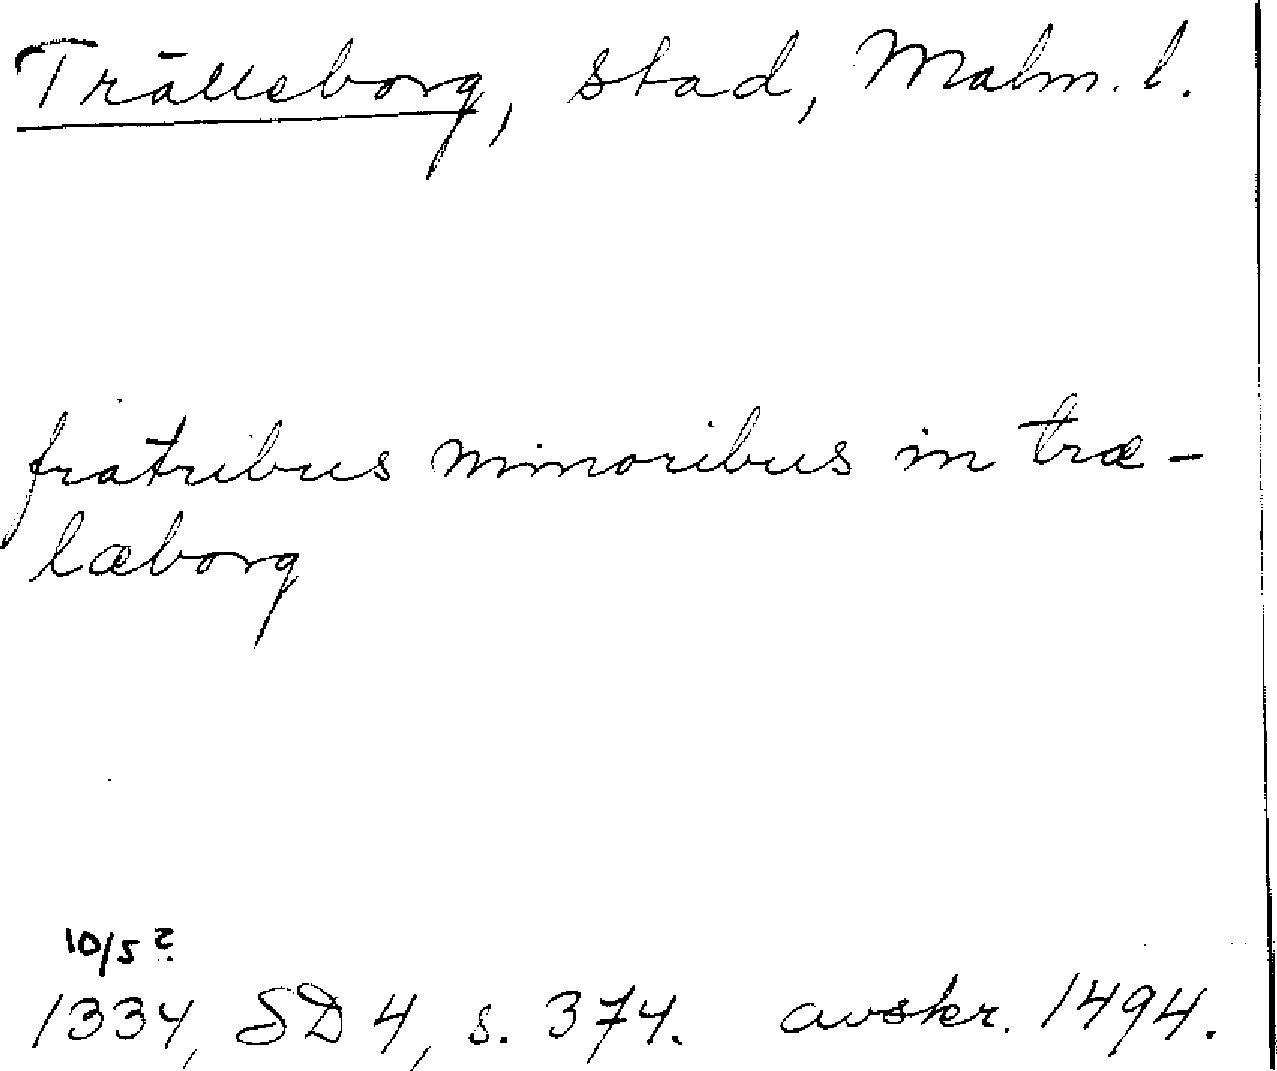 Trälleborg, stad, Malm. l.
fratribus minoribus in træ-
læborg
10/5 ?
1334, SD 4, s. 374. avskr. 1494.